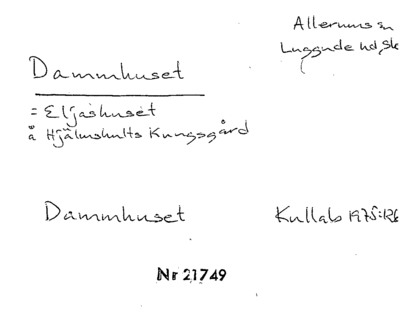 Allerums sn
Luggude hd, Sk
Dammhuset
= Eljashuset
å Hjälmshults Kungsgård
Dammhuset
Kullab 1975:126
Nr 21749